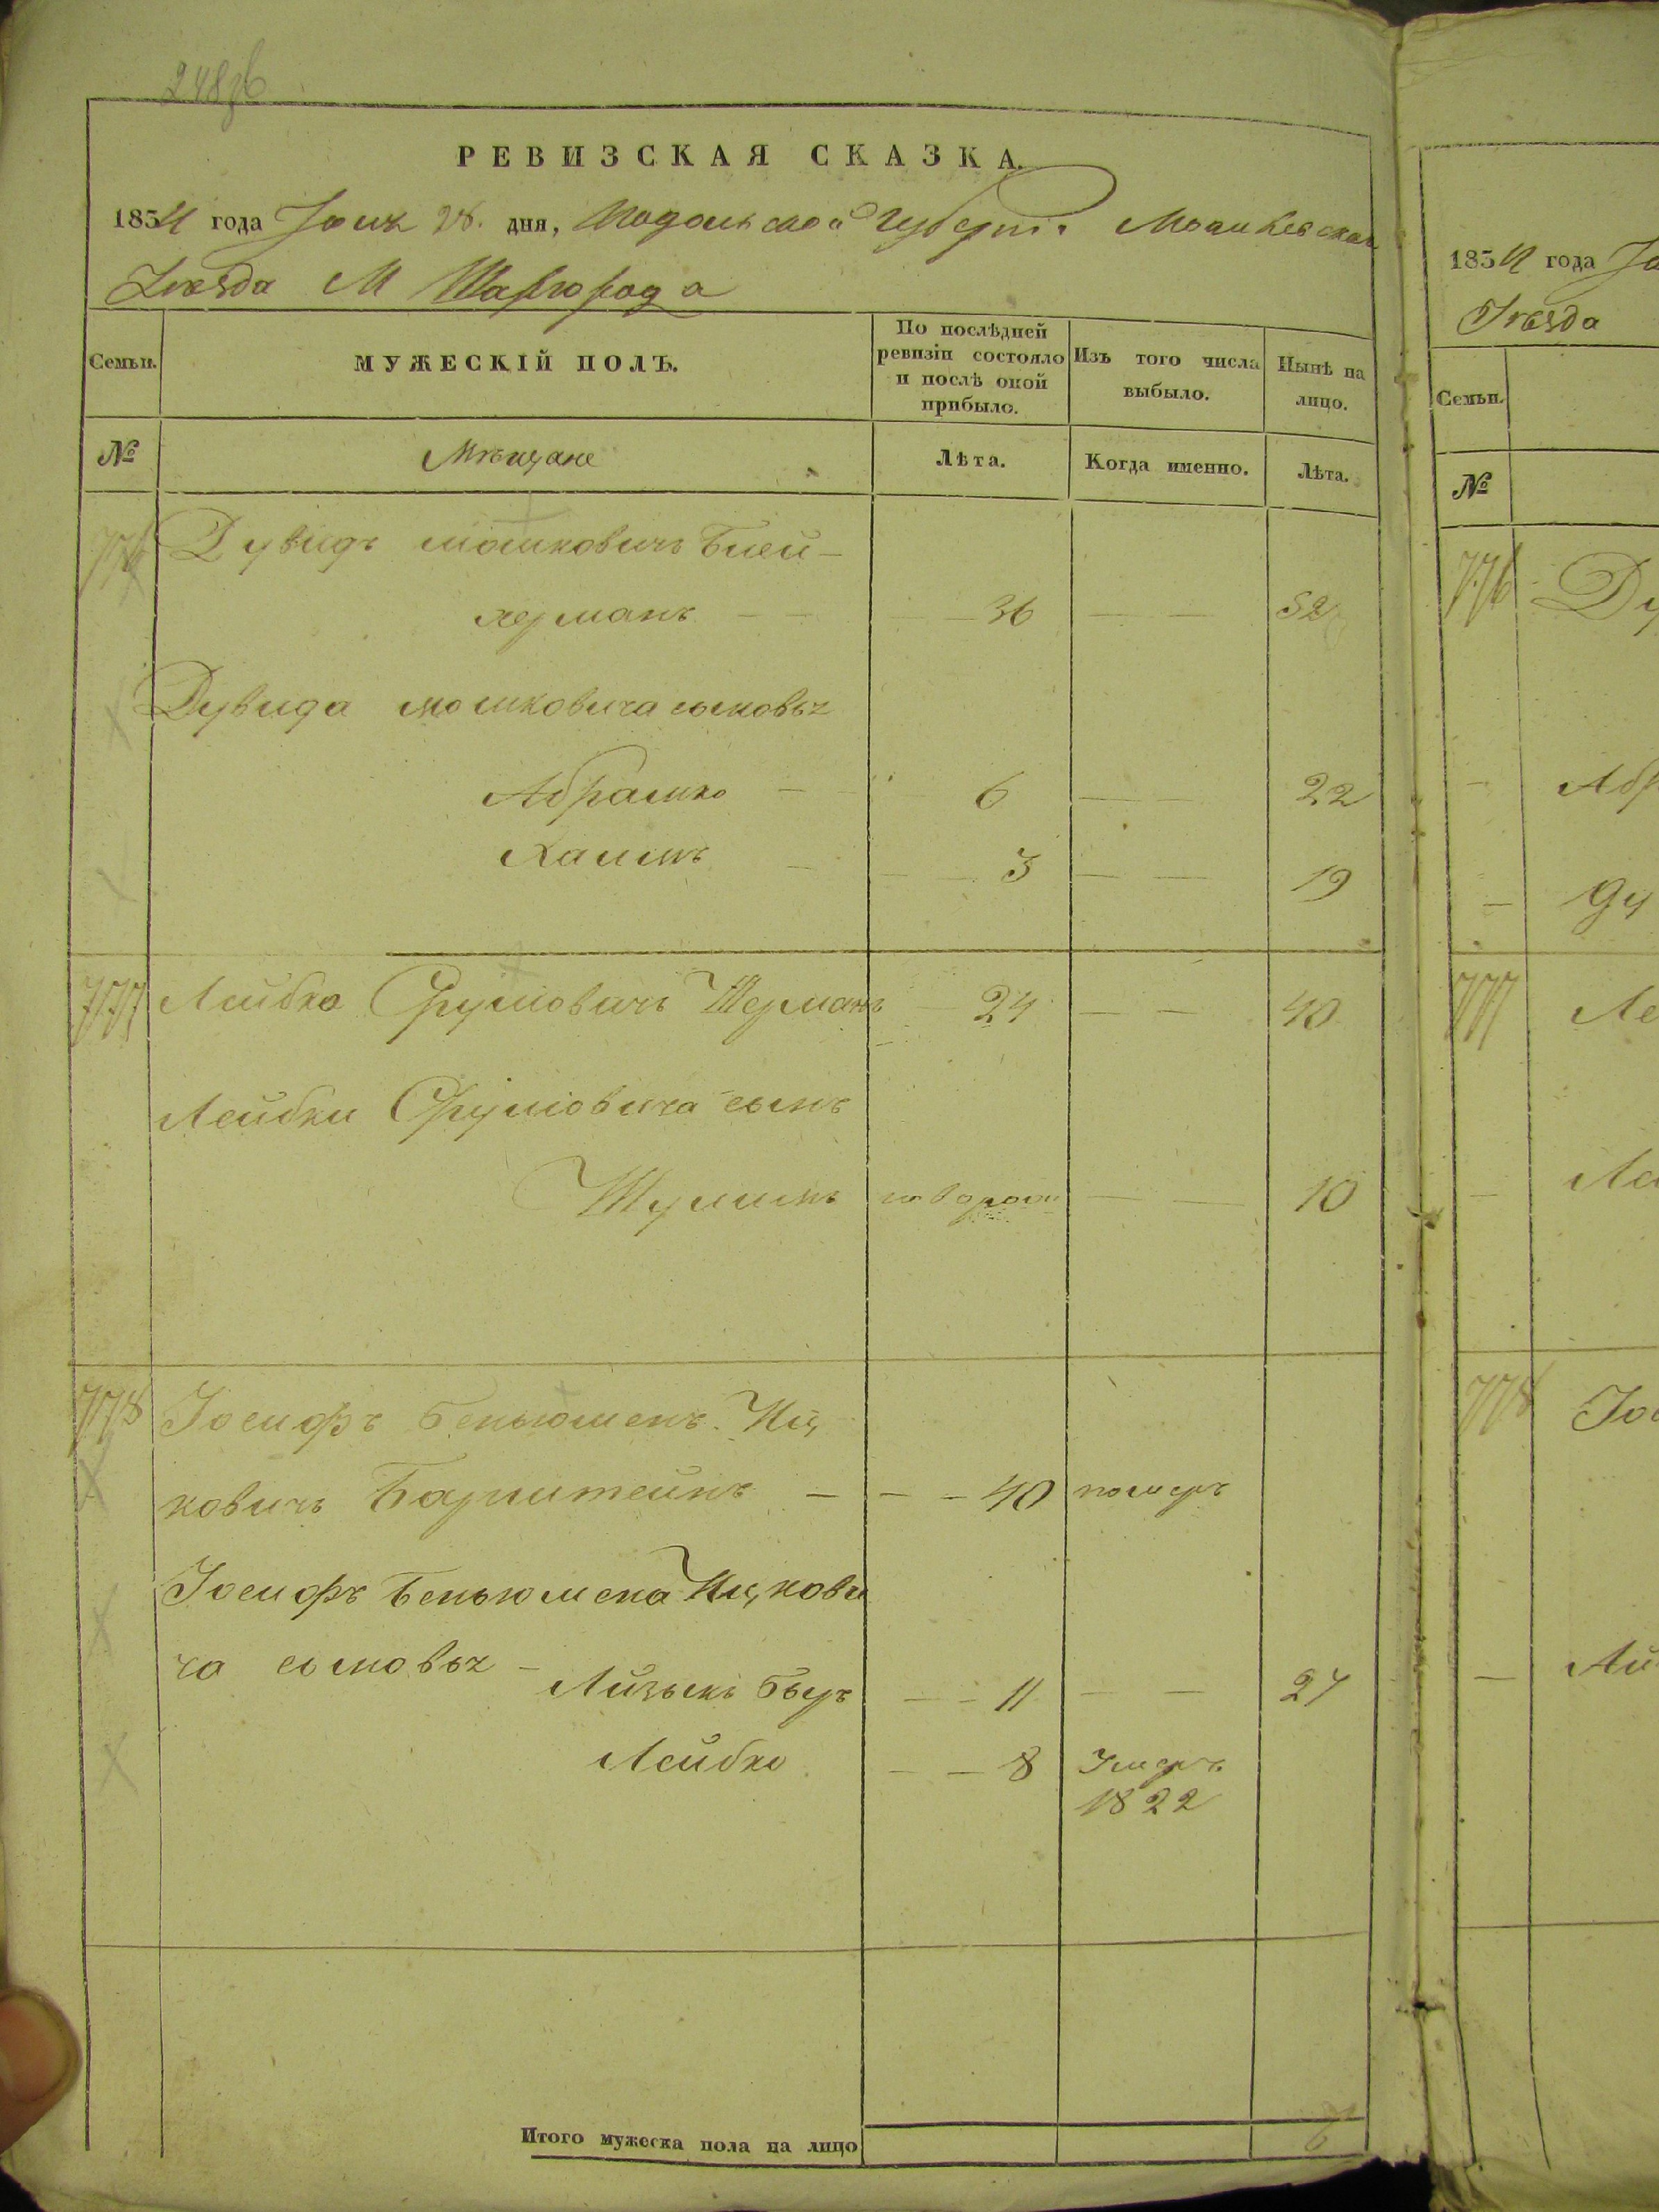 248об
РЕВИЗСКАЯ СКАЗКА.
1834 года Іюня 28. дня, Подольской Губерніи Могилевскаго
Уѣзда М Шаргорода
Семьи.
МУЖЕСКІЙ ПОЛЪ.
По послѣдней ревизіи состояло и послѣ оной прибыло.
Изъ того числа выбыло.
Нынѣ на лицо.
№ Мѣщане Лѣта. Когда именно. Лѣта.
776 Дувидъ Мошковичъ Блей-
херманъ — — — — 36 — — 52
Дувида Мошковича сыновья
Абрамко — 6 — — 22
Хаимъ — — — 3 — — 19
777 Лейбко Фруимовичъ Шерманъ — 24 — — 40
Лейбки Фруимовича сынъ
Шулимъ — — 10
778 Іосифъ Беньюменъ Иц
ковичъ Барштейнъ — — — 40 померъ
Іосифъ Беньюмена Ицкови
ча сыновья —
Айзыкъ Беръ — — 11 — — 27
Лейбко — — 8 Умеръ
1822
Итого мужеска пола на лицо 6
1834 года
Уѣзда
Семьи.
№
776 Ду
— Абр
—
777 Ле
—
778 Іос
— Ай